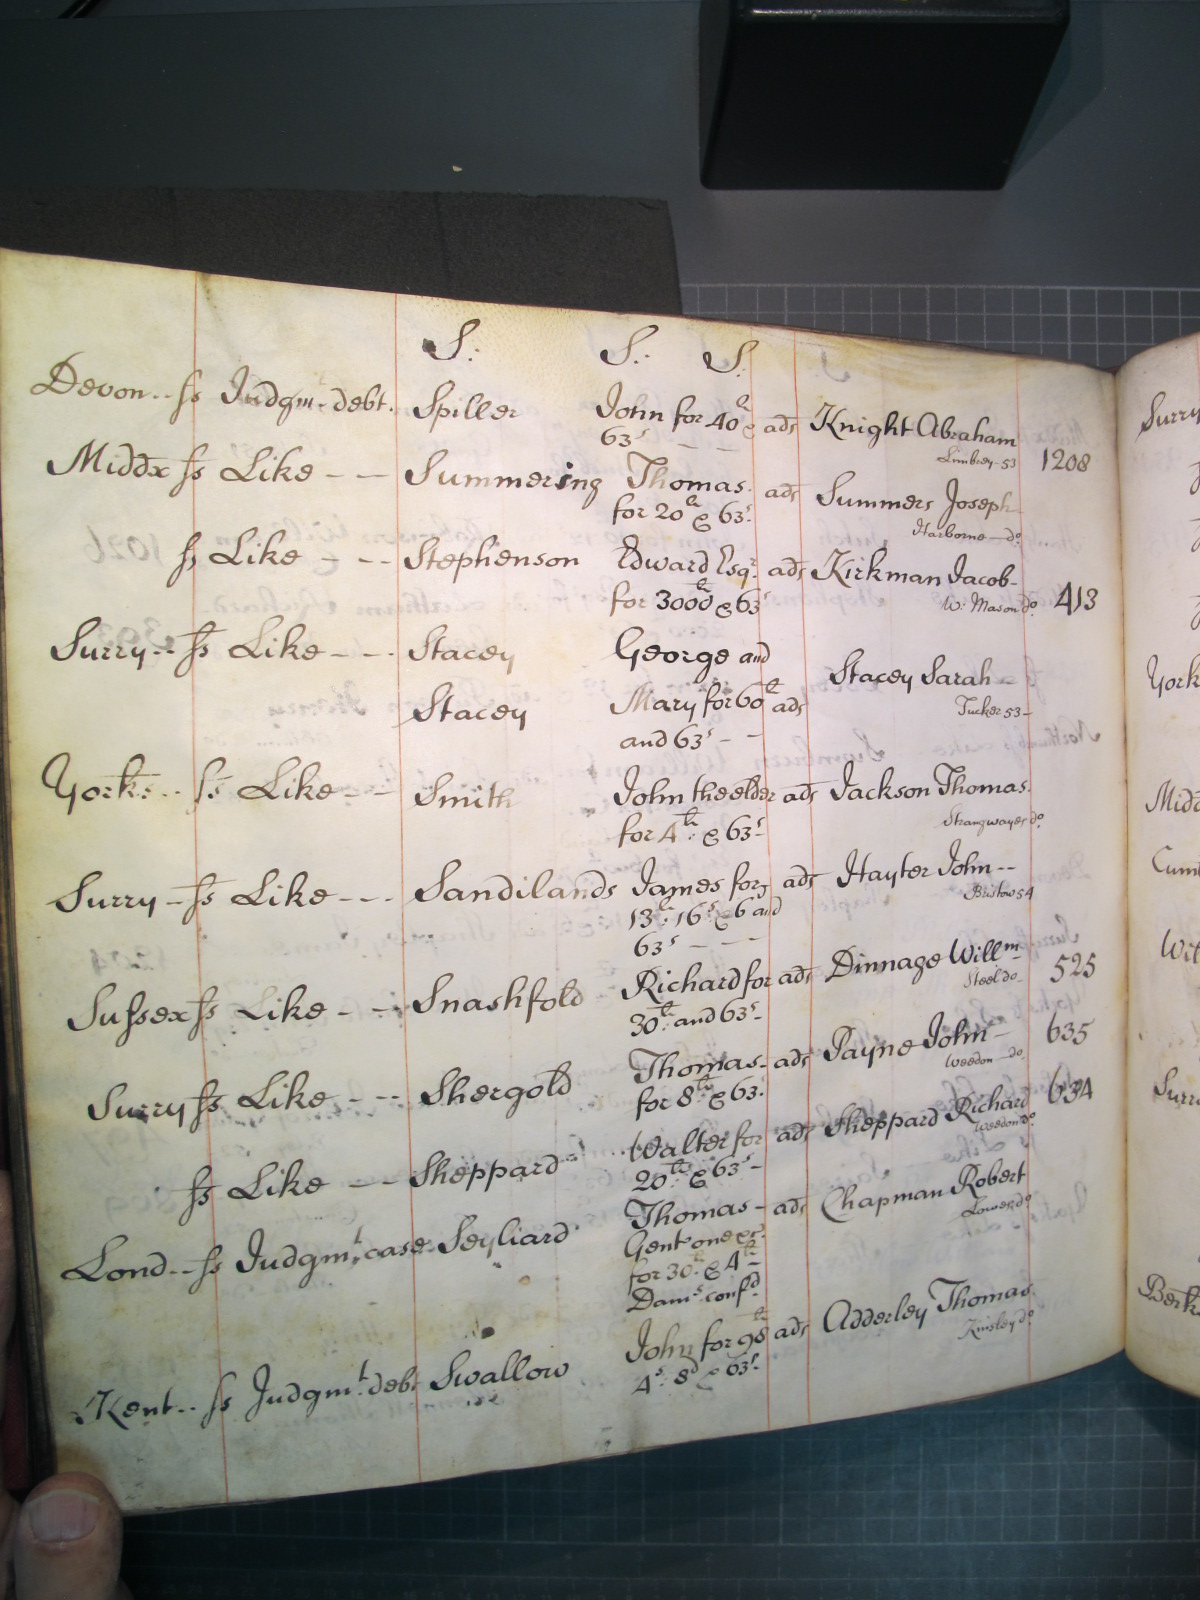 S: S: S.
Devon.. ſs Judgmt. debt. Spiller John for 40li & ads Knight Abraham
63s — — Limbrey 53 1208
Middx ſs Like — — Summering Thomas. ads Summers Joseph
for 20li & 63s. Harborne — do.
ſs Like — — Stephenson Edward Esqr. ads Kirkman Jacob-
for 3000li & 63s W: Mason do. 413
Surry.. ſs Like — — Stacey George and
Stacey Sarah —
Stacey Mary for 60li ads Tucker 53 —
and 63s — —
Yorks.. ſs Like — — Smith John the elder ads Jackson Thomas.
for 4li: & 63s — Strangwayes do.
Surry — ſs Like — — Sandilands James for ads Hayter John --
13li: 16s & 6 and Bristow 54
63s — —
Suſsex ſs Like — — Snashfold Richard for ads Dinnage Willm 525
30li: and 63s — Steel do.
Surry ſs Like — — Shergold Thomas- ads Payne John — 635
for 8li & 63s. Weedon — do.
ſs Like — — Sheppard Walter for ads Sheppard Richard 634
20li: & 63s — Weedon do.
Lond.. ſs Judgmt. case. Seyliard Thomas — ads Chapman Robert
Gent one &c. Lowe do.
for 30li & 4li —
Dams. confd.
Kent.. ſs Judgmt. debt Swallow John for 98li ads Adderley Thomas
4s: 8d & 63s. Kinsley do.
Surry
York
Midd
Cum
Wil
Surr
Berk